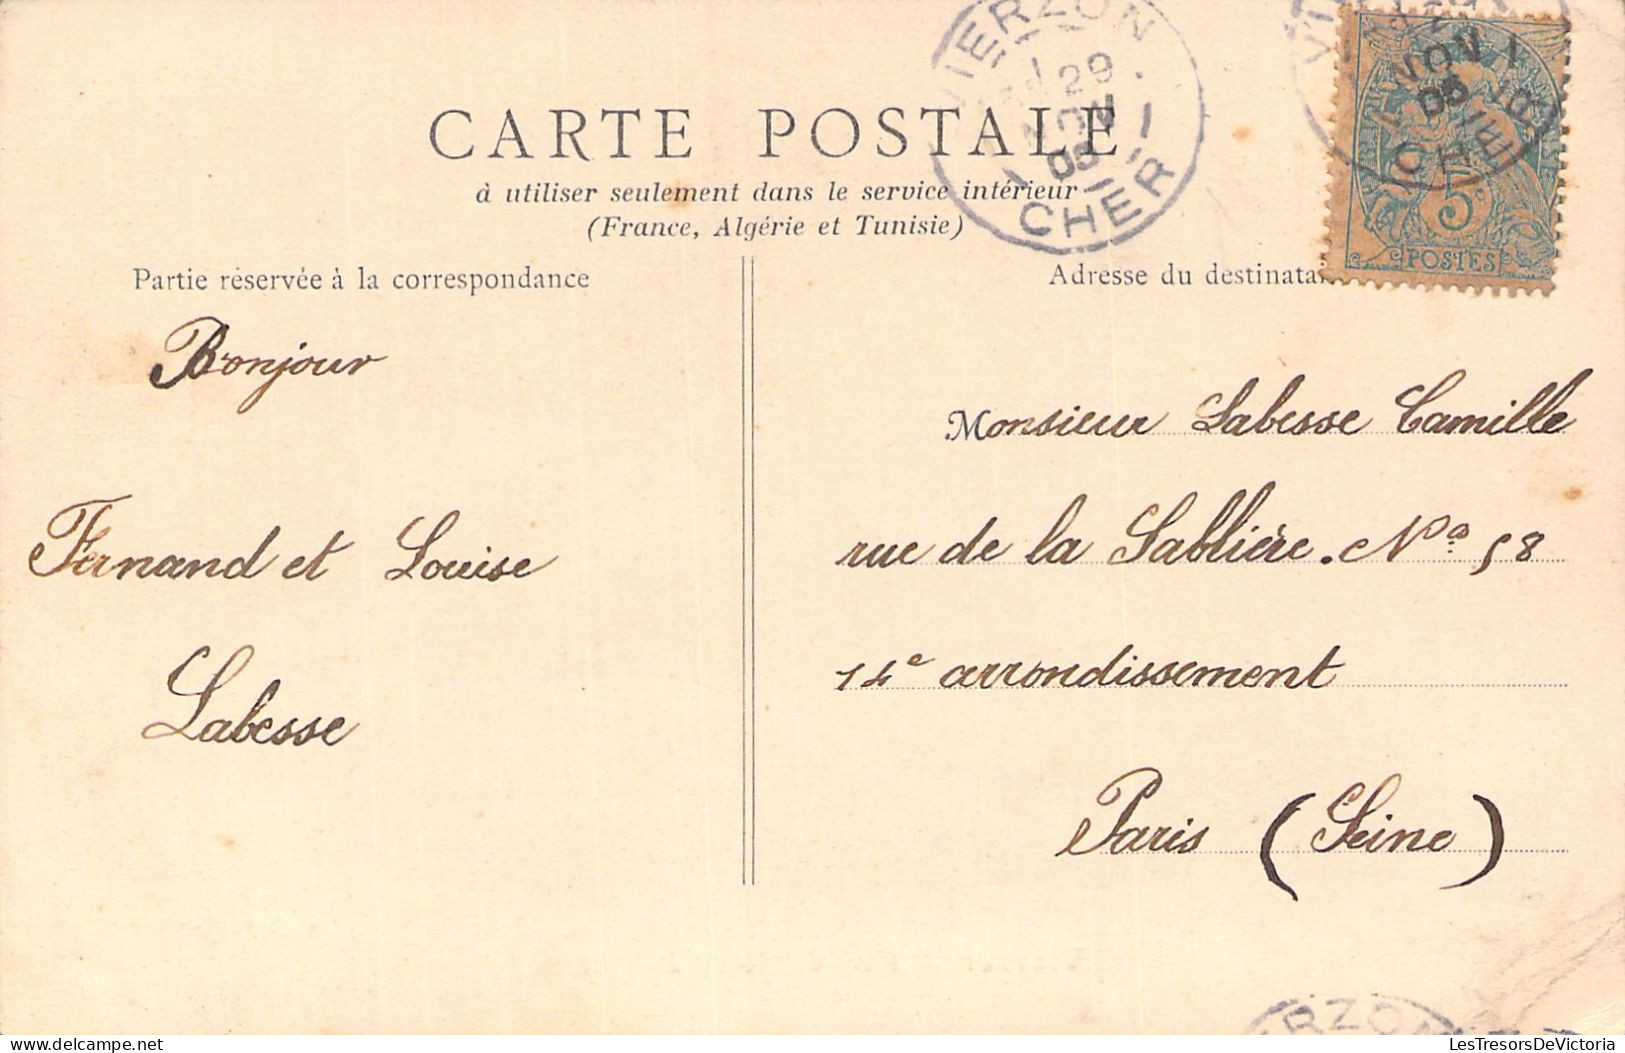 VIERZON
29
NOV
05
CHER
NOV
05
CHER
5c
POSTES
CARTE POSTALE
à utiliser seulement dans le service intérieur
(France, Algérie et Tunisie)
Partie réservée à la correspondance
Adresse du destinatai
Bonjour
Fernand et Louise
Labesse
Monsieur Labesse Camille
rue de la Sablière. No 58
14e arrondissement
Paris (Seine)
ERZON
LesTresorsDeVictoria